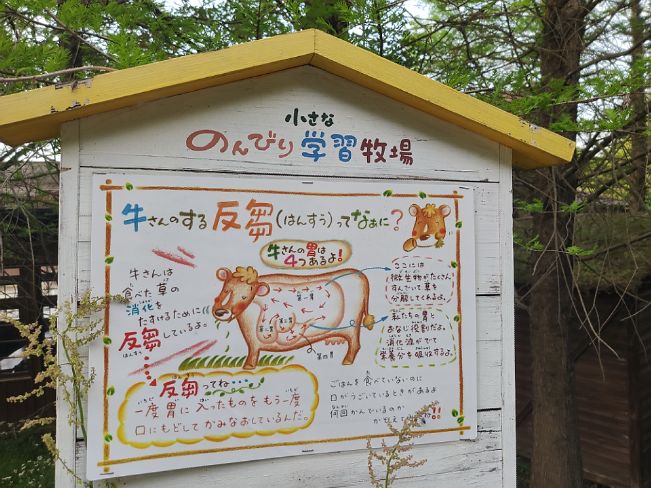 小さな
のんびり学習牧場
牛さんのする反芻(はんすう)ってなぁに?
牛さんの胃は
4つあるよ!
牛さんは
食べた草の
消化を
たすけるために
反芻
はんすう
しているよ。
第一胃
第二胃
第三胃
第四胃
ここには
微生物がたくさん!
すんでいて草を
分解してくれるよ。
私たちの胃と
おなじ役割だよ。
消化液がでて
栄養分を吸収するよ。
反芻ってね…
一度胃に入ったものをもう一度
口にもどしてかみなおしているんだ。
ごはんを食べていないのに
口がうごいているときがあるよ
何回かんでいるのか
かぞえて